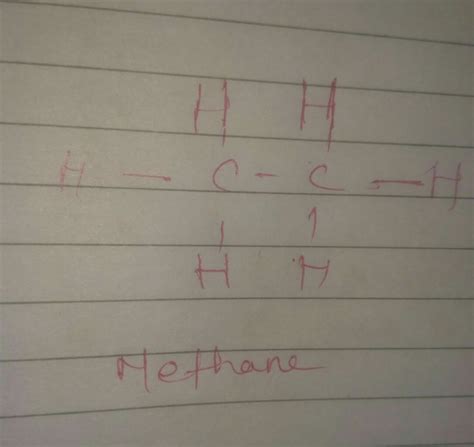 H H
H — C - C — H
H H
Methane